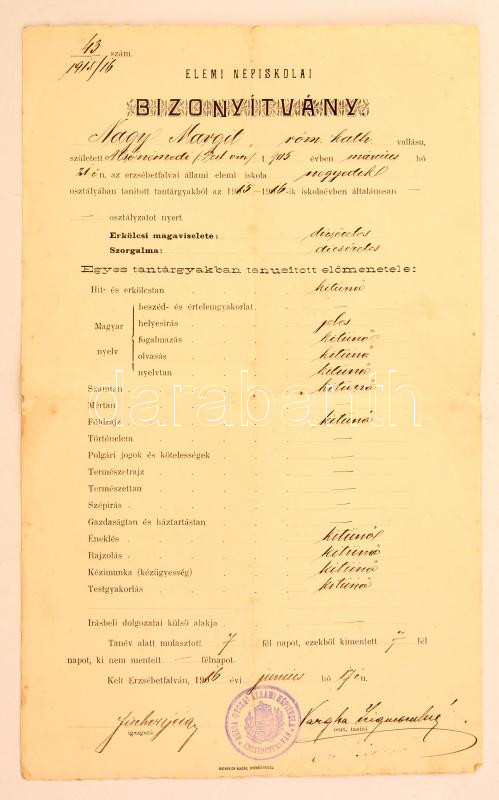 43 szám.
1915/16
ELEMI NÉPISKOLAI
BIZONYÍTVÁNY.
Nagy Margit, róm. kath. vallásu,
született Alsónémedi (Pest vm) 1905 évben március hó
21 én, az erzsébetfalvai állami elemi iskola negyedik
osztályában tanított tantárgyakból az 1915-1916-ik iskolaévben általánosan —
— osztályzatot nyert.
Erkölcsi magaviselete: dicséretes
Szorgalma: dicséretes
Egyes tantárgyakban tanusított előmenetele:
Hit- és erkölcstan kitünő
Magyar nyelv
beszéd- és értelemgyakorlat —
helyesirás jeles
fogalmazás kitünő
olvasás kitünő
nyelvtan kitünő
Számtan kitünő
Mértan —
Földrajz kitünő
Történelem —
Polgári jogok és kötelességek —
Természetrajz —
Természettan —
Szépirás —
Gazdaságtan és háztartástan —
Éneklés kitünő
Rajzolás kitünő
Kézimunka (kézügyesség) kitünő
Testgyakorlás kitünő
Irásbeli dolgozatai külső alakja —
Tanév alatt mulasztott 7 fél napot, ezekből kimentett 7 fél
napot, ki nem mentett — félnapot.
Kelt Erzsébetfalván, 1916 évi junius hó én.
igazgató
Vargha
oszt. tanitó
ÁLLAMI NÉPISKOLA
ERZSÉBETFALVA
darabanth